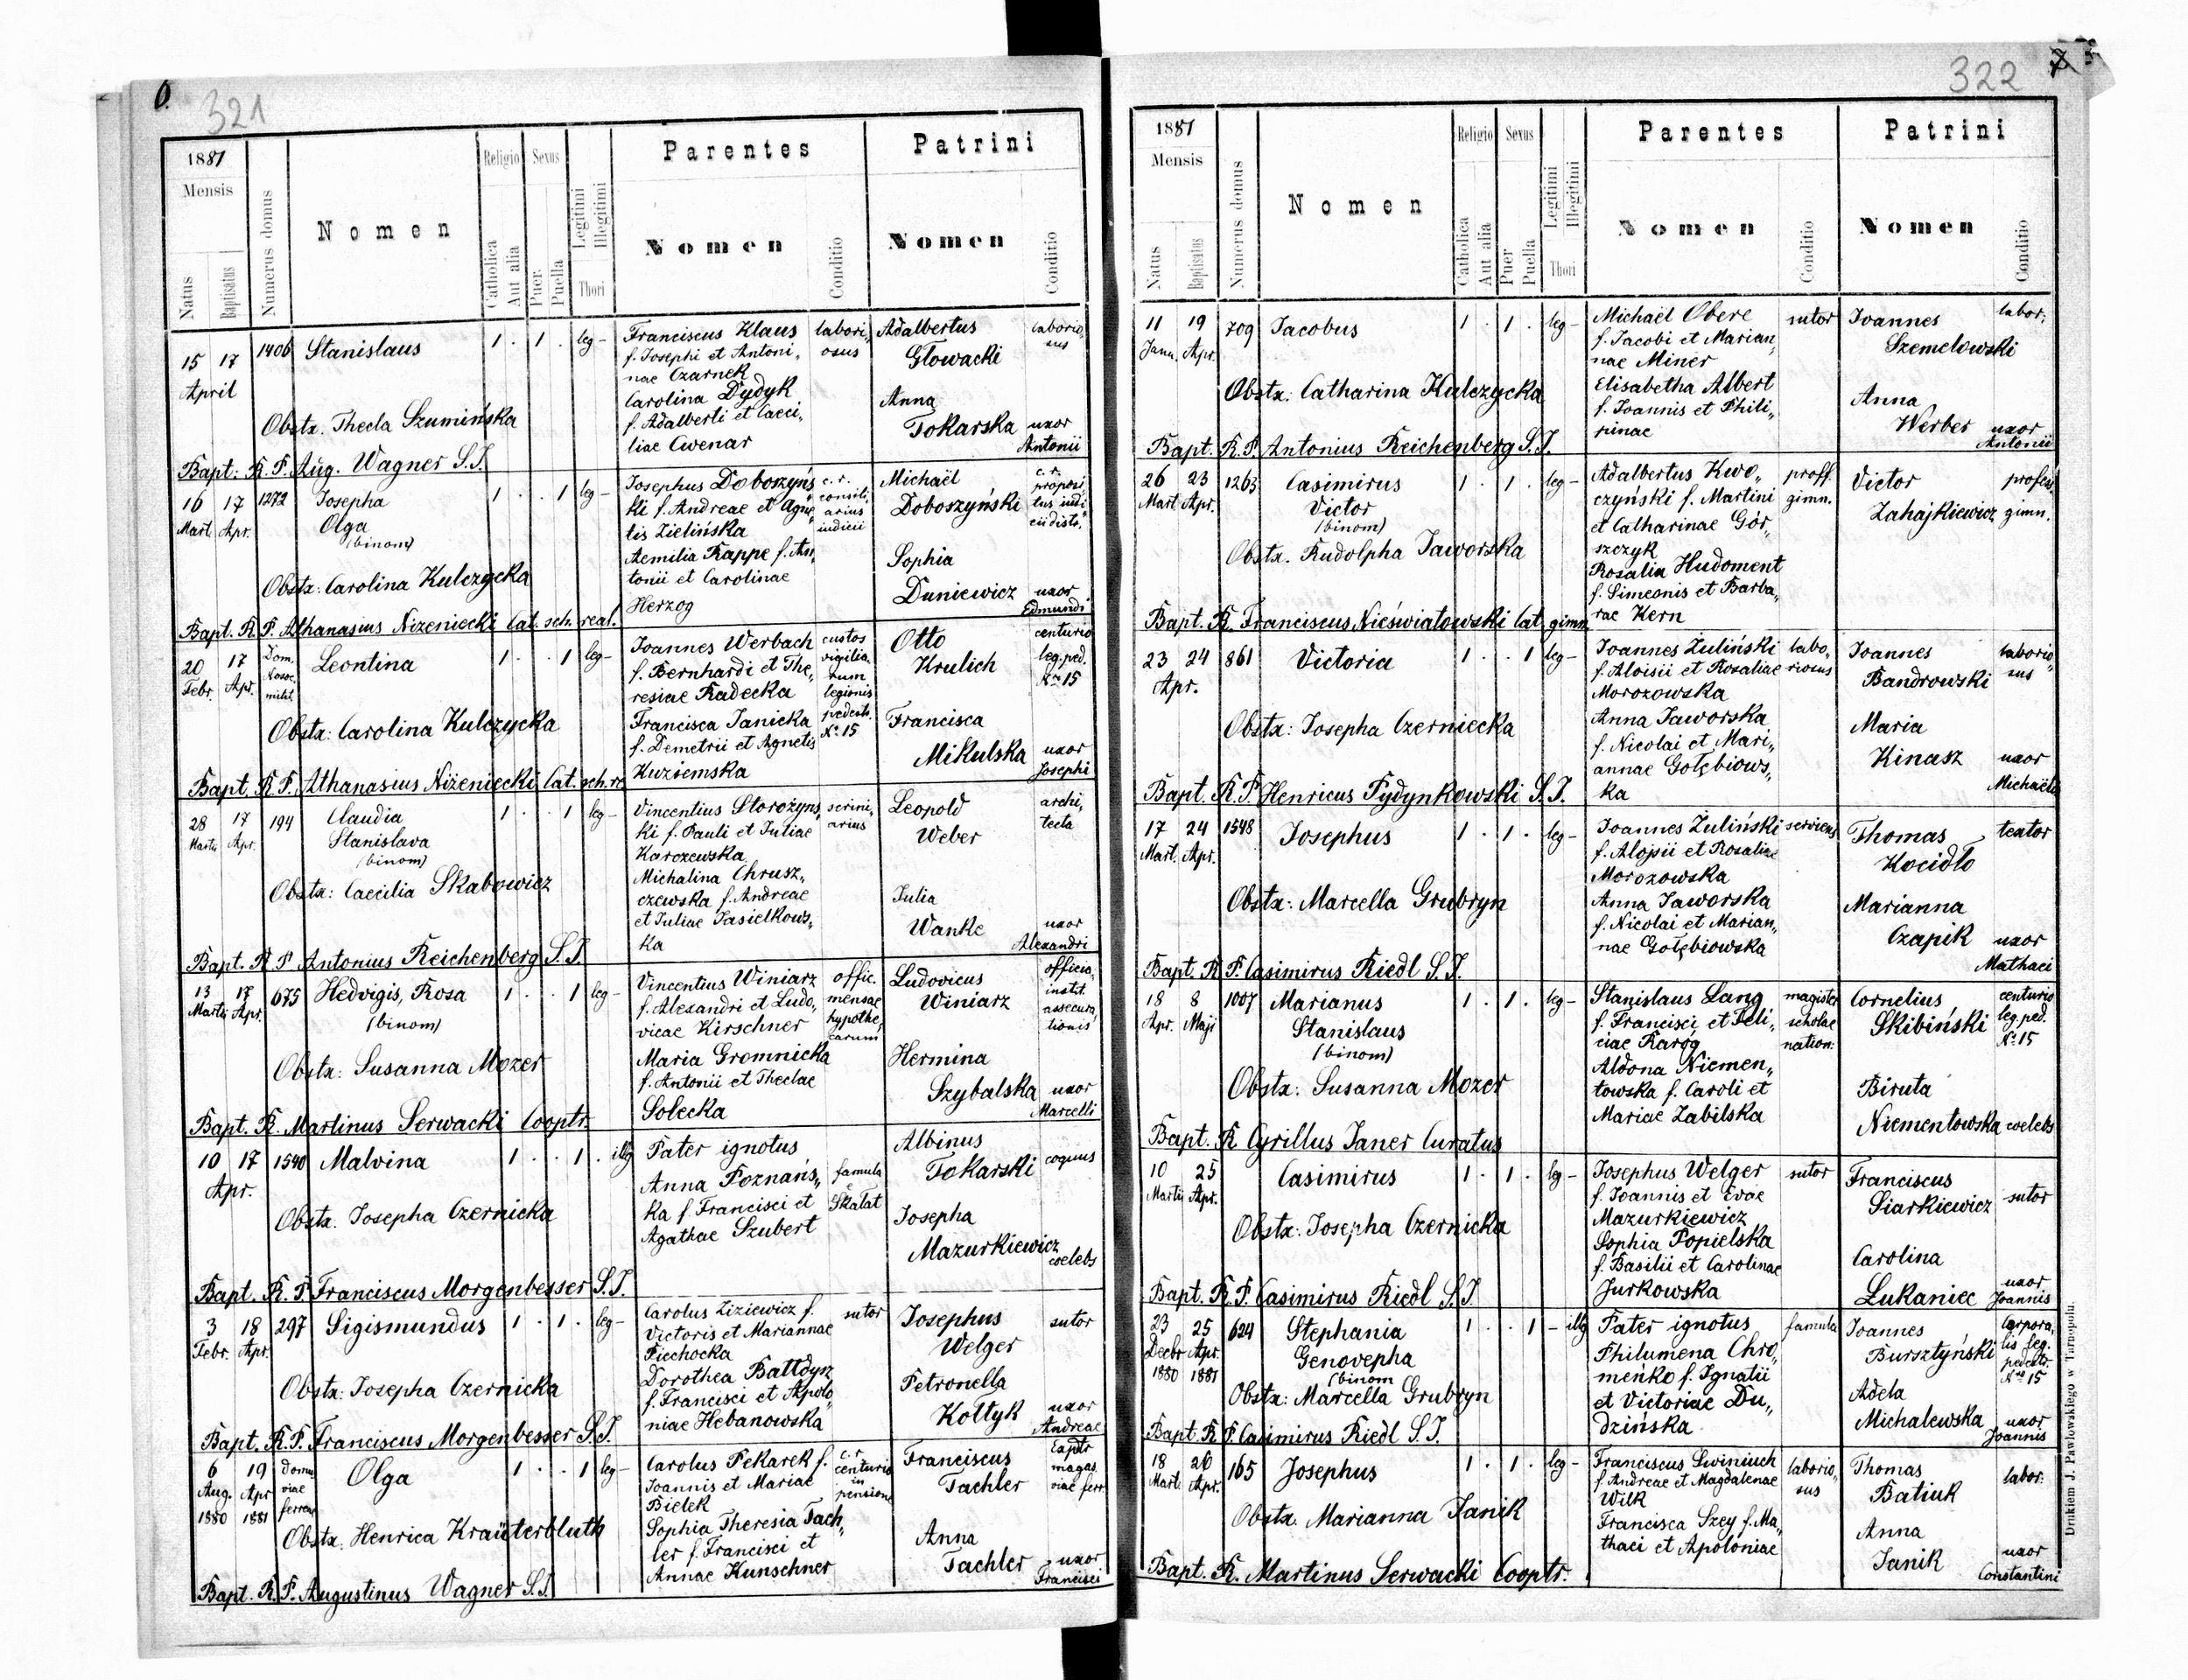 6.
321
1881
Mensis
Natus
Baptisatus
Numerus domus
Nomen
Religio
Catholica
Aut alia
Sexus
Puer.
Puella
Legitimi
Illegitimi
Thori
Parentes
Nomen
Conditio
Patrini
Nomen
Conditio
15 17 1406 Stanislaus 1 . 1 . leg-
April
Obstx. Thecla Szumińska
Franciscus Klaus
f. Josephi et Antoni„
nae Czarnek
Carolina Dydyk
f. Adalberti et Caeci„
liae Cwenar
labori„
osus
Adalbertus laborio„
Głowacki sus
Anna
Tokarska uxor
Antonii
Bapt. R. P. Aug. Wagner S.J.
16 17 1272 Josepha 1 . . 1 leg-
Mart. Apr. Olga
(binom)
Obstx: Carolina Kulczycka
Josephus Doboszyńs„
ki f. Andreae et Agne„
tis Zielińska
Aemilia Rappe f. An„
tonii et Carolinae
Herzog
c. r.
consili„
arius
iudicii
Michaël c. r.
Doboszyński proposi„
tus iudi„
cii distr.
Sophia
Duniewicz uxor
Edmundi
Bapt. R. P. Athanasius Nizeniecki Cat. sch. real.
20 17 Dom. Leontina 1 . . 1 leg-
Febr. Apr. milit.
Obstx: Carolina Kulczycka
Joannes Werbach
f. Bernhardi et The„
resiae Radecka
Francisca Janicka
f. Demetrii et Agnetis
Kuziemska
custos
vigilia„
rum
legionis
pedestr.
No. 15
Otto centurio
Krulich leg. ped.
Nro 15
Francisca
Mikulska uxor
Josephi
Bapt. R. P. Athanasius Niżeniecki Cat. sch. re
28 17 194 Claudia 1 . . 1 leg-
Martii Apr. Stanislava
(binom)
Obstx: Caecilia Skabowicz
Vincentius Storożyńs„
ki f. Pauli et Juliae
Karczewska
Michalina Chrusz„
czewska f. Andreae
et Juliae Jasielkows„
ka
scrini„
arius
Leopold archi„
Weber tecta
Julia
Wanke uxor
Alexandri
Bapt. R. P. Antonius Reichenberg S.J.
13 17 675 Hedvigis, Rosa 1 . . 1 leg-
Martii Apr. (binom)
Obstx: Susanna Mozer
Vincentius Winiarz
f. Alexandri et Ludo„
vicae Kirschner
Maria Gromnicka
f. Antonii et Theclae
Solecka
offic.
mensae
hypothe„
carum
Ludovicus officia„
Winiarz instit.
assecura„
tionis
Hermina
Szybalska uxor
Marcelli
Bapt. R. Martinus Serwacki Cooptr.
10 17 1540 Malvina 1 . . 1 . illg
Apr.
Obstx. Josepha Czernicka
Pater ignotus
Anna Poznańs„
ka f. Francisci et
Agathae Szubert
famula
e
Skałat
Albinus
Tokarski coquus
Josepha
Mazurkiewicz
coelebs
Bapt. R. P. Franciscus Morgenbesser S.J.
3 18 297 Sigismundus 1 . 1 . leg-
Febr. Apr.
Obstx: Josepha Czernicka
Carolus Ziziewicz f.
Victoris et Mariannae
Piechocka
Dorothea Battdysz
f. Francisci et Apolo„
niae Hebanowska
sutor
Josephus sutor
Welger
Petronella
Kołtyk uxor
Andreae
Bapt. R. P. Franciscus Morgenbesser S.J.
6 19 Domus Olga 1 . . 1 leg-
Aug. Apr viae
1880 1881 ferreae
Obstx. Henrica Kraüterbluth
Carolus Pekarek f.
Joannis et Mariae
Bielek
Sophia Theresia Tach„
ler f. Francisci et
Annae Kunschner
c. r.
centurio
in
pensione
Franciscus
Tachler magas.
viae ferr.
Anna
Tachler uxor
Francisci
Bapt. R. P. Augustinus Wagner S.J.
322
1881
Mensis
Natus
Baptisatus
Numerus domus
Nomen
Religio
Catholica
Aut alia
Sexus
Puer
Puella
Legitimi
Illegitimi
Thori
Parentes
Nomen
Conditio
Patrini
Nomen
Conditio
11 19 709 Jacobus 1 . 1 . leg-
Janu. Apr.
Obstx: Catharina Kulczycka
Michaël Obere
f. Jacobi et Marian„
nae Miner
Elisabetha Albert
f. Joannis et Phili„
pinae
sutor
Joannes labor:
Szemelowski
Anna
Werber uxor
Antonii
Bapt. R. P. Antonius Reichenberg S.J.
26 23 1263 Casimirus 1 . 1 . leg-
Mart. Apr. Victor
(binom)
Obstx. Rudolpha Jaworska
Adalbertus Kwo„
czyński f. Martini
et Catharinae Gór„
szczyk
Rosalia Hudoment
f. Simeonis et Barba„
rae Kern
proff.
gimn.
Victor profess.
Zahajkiewicz gimn.
Bapt. R. Franciscus Nieświatowski Cat. gimn.
23 24 861 Victoria 1 . . 1 leg-
Apr.
Obstx: Josepha Czerniecka
Joannes Żuliński
f. Aloisii et Rosaliae
Morozowska
Anna Jaworska
f. Nicolai et Mari„
annae Gołębiows„
ka
labo„
riosus
Joannes laborio„
Bandrowski sus
Maria
Kinasz uxor
Michaëlis
Bapt. R. P. Henricus Pydynkowski S.J.
17 24 1548 Josephus 1 . 1 . leg-
Mart. Apr.
Obstx: Marcella Grubryn
Joannes Żuliński
f. Alojsii et Rosaliae
Morozowska
Anna Jaworska
f. Nicolai et Marian„
nae Gołębiowska
serviens
Thomas textor
Kocidło
Marianna
Czapik uxor
Mathaei
Bapt. R. P. Casimirus Riedl S.J.
18 8 1007 Marianus 1 . 1 . leg-
Apr. Maji Stanislaus
(binom)
Obstx: Susanna Mozer
Stanislaus Lang
f. Francisci et Feli„
ciae Raróg
Aldona Niemen„
towska f. Caroli et
Mariae Zabilska
magister
scholae
nation:
Cornelius centurio
Skibiński leg. ped.
No. 15
Biruta
Niementowska coelebs
Bapt. R. Cyrillus Janer Curatus
10 25 Casimirus 1 . 1 . leg-
Martii Apr.
Obstx: Josepha Czernicka
Josephus Welger
f. Joannis et Evae
Mazurkiewicz
Sophia Popielska
f. Basilii et Carolinae
Jurkowska
sutor
Franciscus
Siarkiewicz sutor
Carolina
Lukaniec uxor
Joannis
Bapt. R. P. Casimirus Riedl S.J.
23 25 624 Stephania 1 . . 1 - illg
Decbr Apr. Genovepha
1880 1881 (binom
Obstx: Marcella Grubryn
Pater ignotus
Philumena Chro„
meńko f. Ignatii
et Victoriae Du„
dzińska
famula
Joannes Corpora„
Bursztyński lis leg.
pedestr.
Nro 15
Adela
Michalewska uxor
Joannis
Bapt. R. P. Casimirus Riedl S.J.
18 26 165 Josephus 1 . 1 . leg-
Mart. Apr.
Obstx. Marianna Janik
Franciscus Swiniuch
f. Andreae et Magdalenae
Wilk
Francisca Szey f. Ma„
thaei et Apoloniae
laborio„
sus
Thomas
Batiuk labor:
Anna
Janik uxor
Constantini
Bapt. R. Martinus Serwacki Cooptr.
Drukiem J. Pawłowskiego w Tarnopolu.